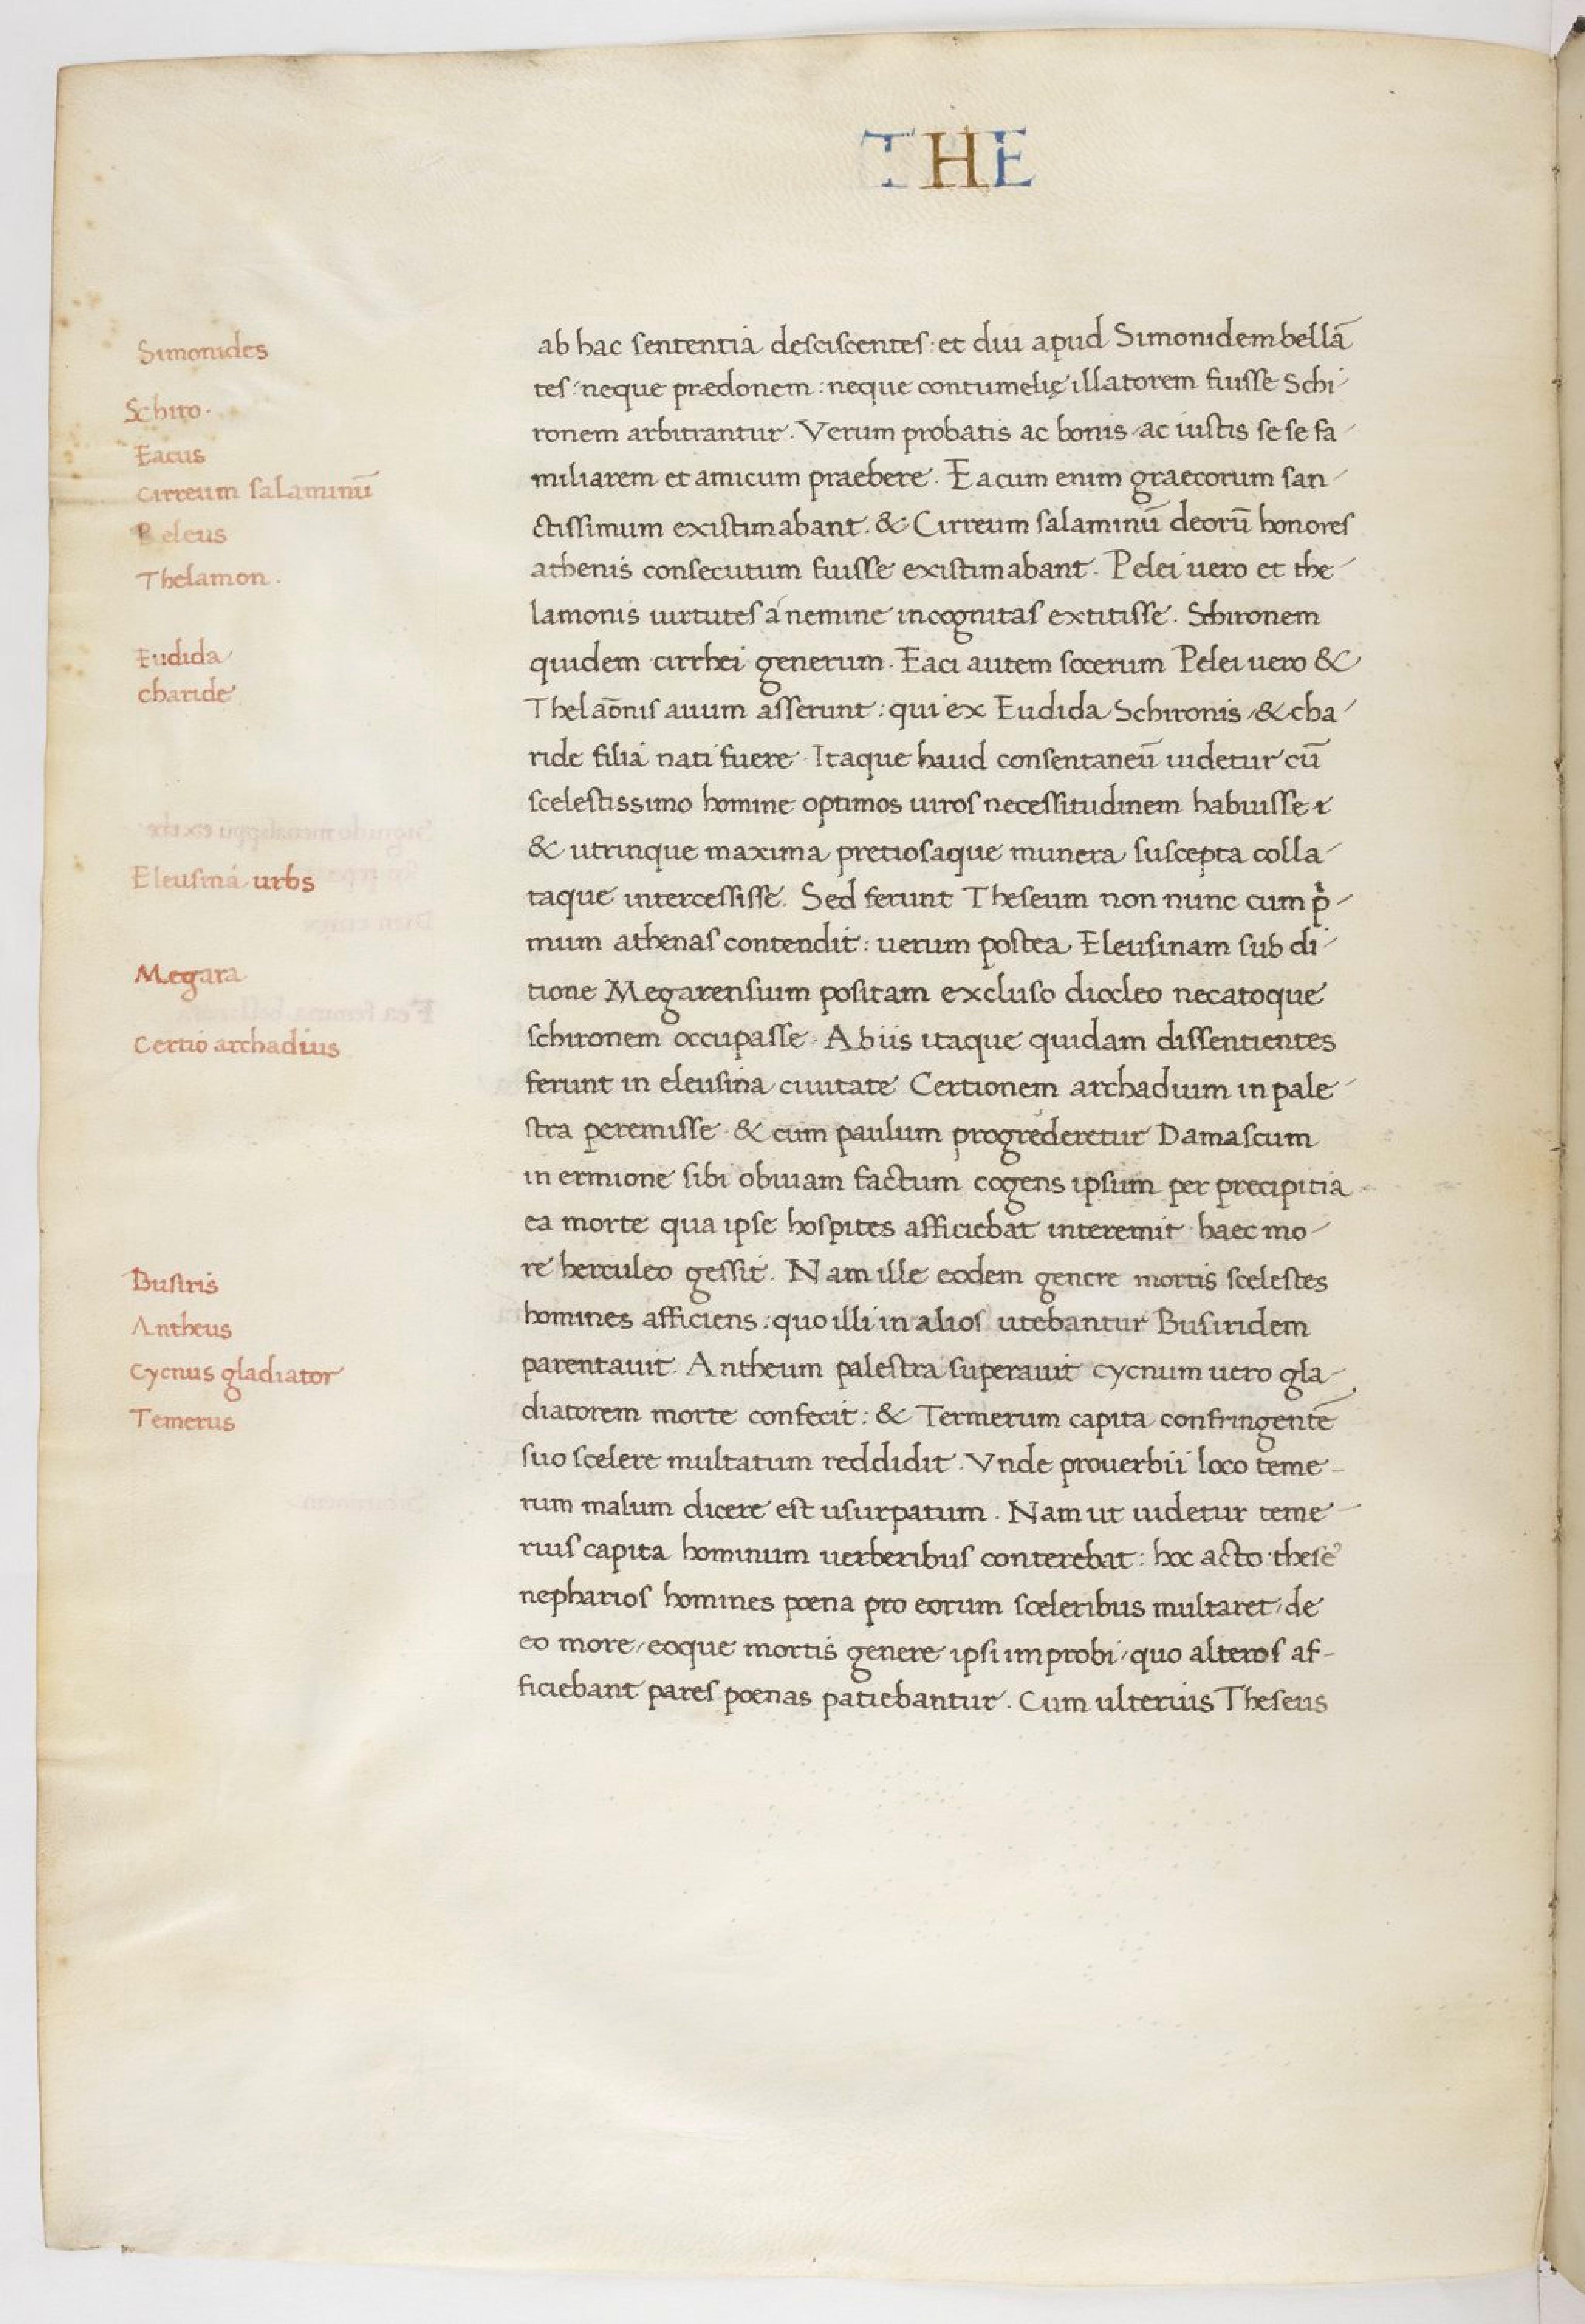 THE
Simonides
Schiro.
Eacus
Cirreum salaminū
Peleus
Thelamon.
Eudida
charide
Eleusina urbs
Megara
Certio archadius
Busiris
Antheus
Cycnus gladiator
Temerus
ab hac sententia desciscentes: et diu apud Simonidem bellā
tes neque prædonem: neque contumelię illatorem fuisse Schi
ronem arbitrantur. Verum probatis ac bonis ac iustis se se fa
miliarem et amicum praebere. Eacum enim graecorum san
ctissimum existimabant. & Cirreum salaminū deorū honores
athenis consecutum fuisse existimabant. Pelei uero et the
lamonis uirtutes a nemine incognitas extitisse. Schironem
quidem cirrhei generum. Eaci autem socerum Pelei uero &
Thelaōnis auum asserunt: qui ex Eudida Schironis & cha
ride filia nati fuere. Itaque haud consentaneū uidetur cū
scelestissimo homine optimos uiros necessitudinem habuisse
& utrinque maxima pretiosaque munera suscepta colla
taque intercessisse. Sed ferunt Theseum non nunc cum p̍
mum athenas contendit: uerum postea Eleusinam sub di
tione Megarensium positam excluso diocleo necatoque
schironem occupasse. Ab iis itaque quidam dissentientes
ferunt in eleusina ciuitate Certionem archadium in pale
stra peremisse & cum paulum progrederetur Damascum
in ermione sibi obuiam factum cogens ipsum per precipitia
ea morte qua ipse hospites afficiebat interemit haec mo
re herculeo gessit. Nam ille eodem genere mortis scelestes
homines afficiens: quo illi in alios utebantur Busiridem
parentauit. Antheum palestra superauit cycnum uero gla
diatorem morte confecit: & Termerum capita confringentē
suo scelere multatum reddidit. Vnde prouerbii loco teme
rum malum dicere est usurpatum. Nam ut uidetur teme
rius capita hominum uerberibus conterebat: hoc acto theseꝰ
nepharios homines poena pro eorum sceleribus multaret, de
eo more, eoque mortis genere ipsi improbi, quo alteros af
ficiebant pares poenas patiebantur. Cum ulterius Theseus